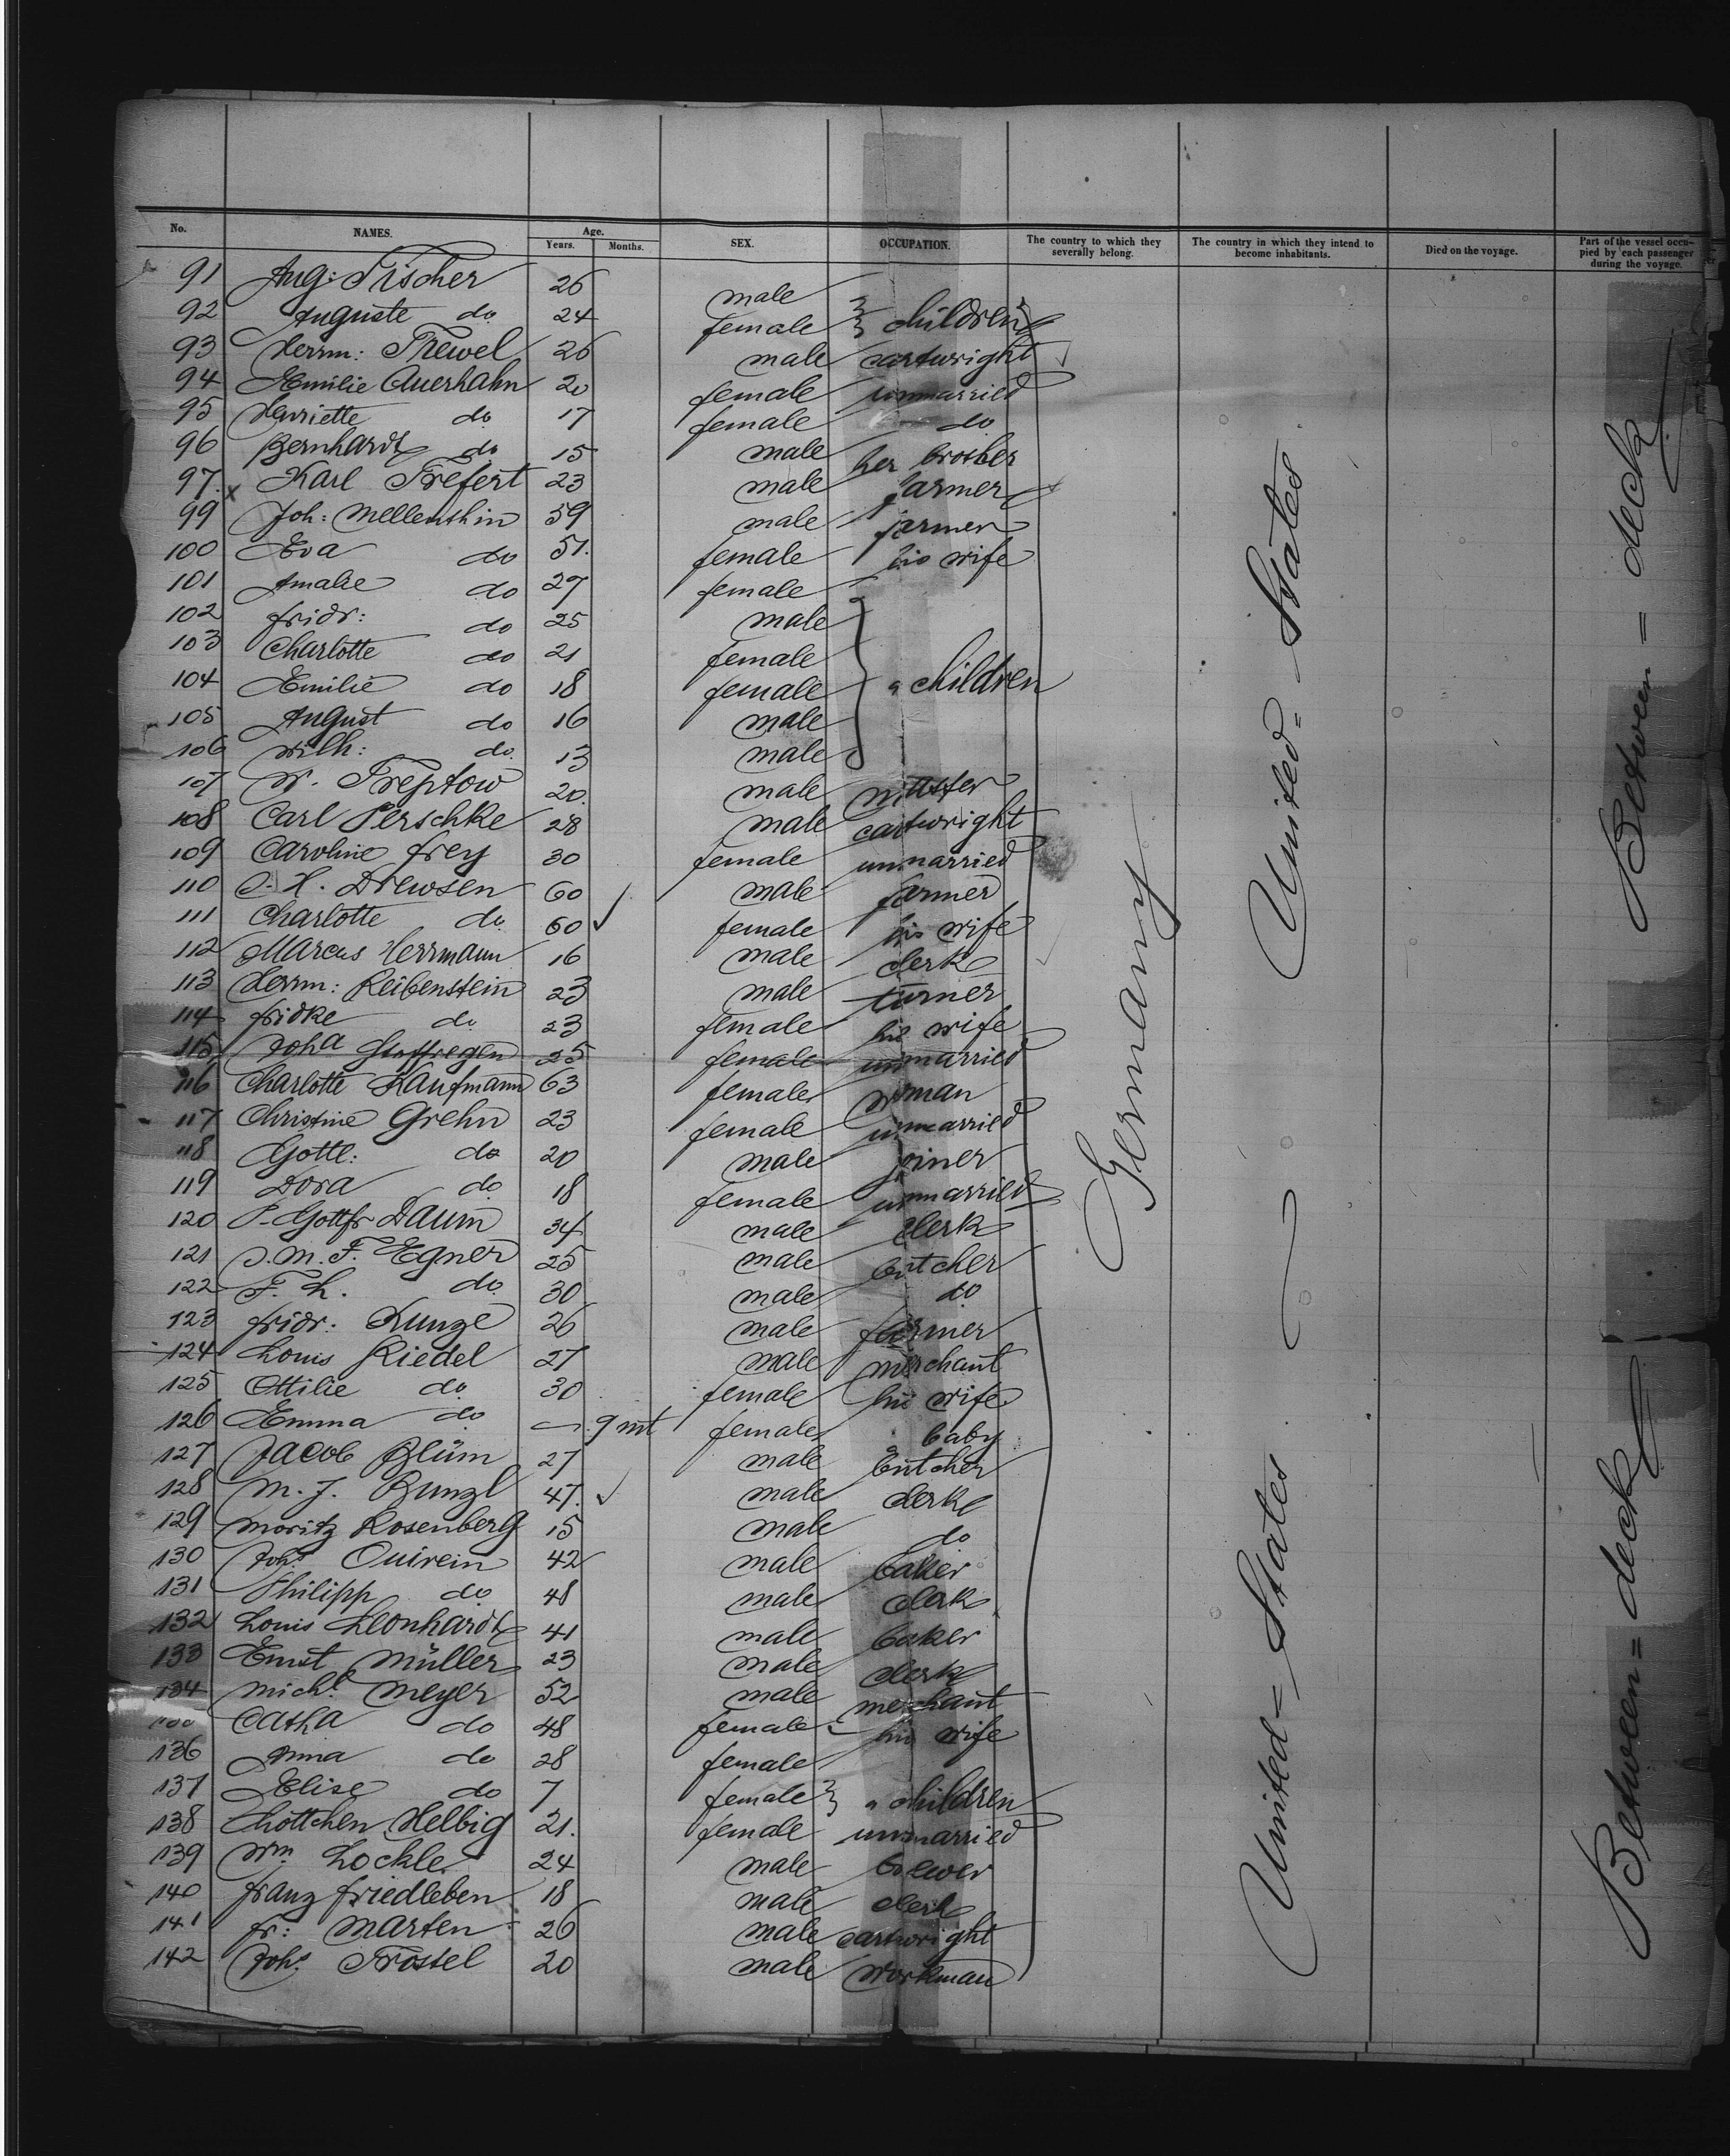 No. NAMES. Age. Years. Months. SEX. OCCUPATION. The country to which they severally belong. The country in which they intend to become inhabitants. Died on the voyage. Part of the vessel occupied by each passenger during the voyage.
91 Aug: Fischer 26 male
92 Auguste do 24 female } children
93 Herrm: Trewel 26 male cartwright
94 Emilie Auerhahn 20 female unmarried
95 Harriette do 17 female do
96 Bernhardt do 15 male her brother
97. x Karl Trefert 23 male farmer
99 Joh: Mellenthin 59 male farmer
100 Eva do 51. female his wife
101 Amalie do 27 female
102 fridr: do 25 male
103 Charlotte do 21 female
104 Emilie do 18 female } children
105 August do 16 male
106 Wilh: do 13 male
107 W. Treptow 20. male
108 Carl Perschke 28 male cartwright
109 Caroline frey 30 female unmarried
110 H. Drewsen 60 male farmer
111 Charlotte do 60 female his wife
112 Marcus Herrmann 16 male clerk
113 Herrm: Reibenstein 23 male turner
114 fridke do 23 female his wife
115 Joha 25 female unmarried
116 Charlotte Kaufmann 63 female woman
117 Christine Grehn 23 female unmarried
118 Gottl: do 20 male joiner
119 Dora do 18 female unmarried
120 Gottfr Daum 34 male clerk
121 M. F. Egner 25 male butcher
122 F. L. do 30 male do
123 fridr. Kunze 26 male farmer
124 Louis Riedel 27 male merchant
125 Ottilie do 30 female his wife
126 Emma do 9 mt female baby
127 Jacob Blüm 27 male butcher
128 M. J. Bunzl 47. male clerk
129 Moritz Rosenberg 15 male do
130 Johs Quirein 42 male baker
131 Philipp do 48 male clerk
132 Louis Leonhardt 41 male baker
133 Ernst Müller 23 male clerk
134 Michl Meyer 52 male merchant
Catha do 48 female his wife
136 Anna do 28 female
137 Elise do 7 female } children
138 Lottchen Helbig 21. female unmarried
139 Wm Lockle 24 male brewer
140 franz friedleben 18 male clerk
141 fr: Marten 26 male cartwright
142 Johs Trostel 20 male workman
Germany
United = States
United = States
Between = deck
Between = deck